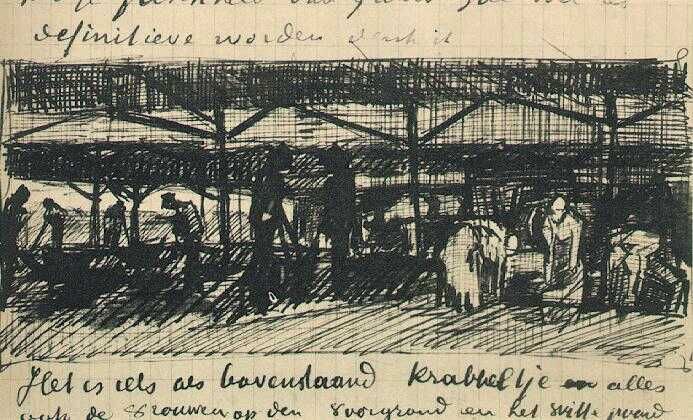 definitieve worden
Het is iets als bovenstaand krabbeltje en alles
ook de vrouwen op den voorgrond en het witte paard